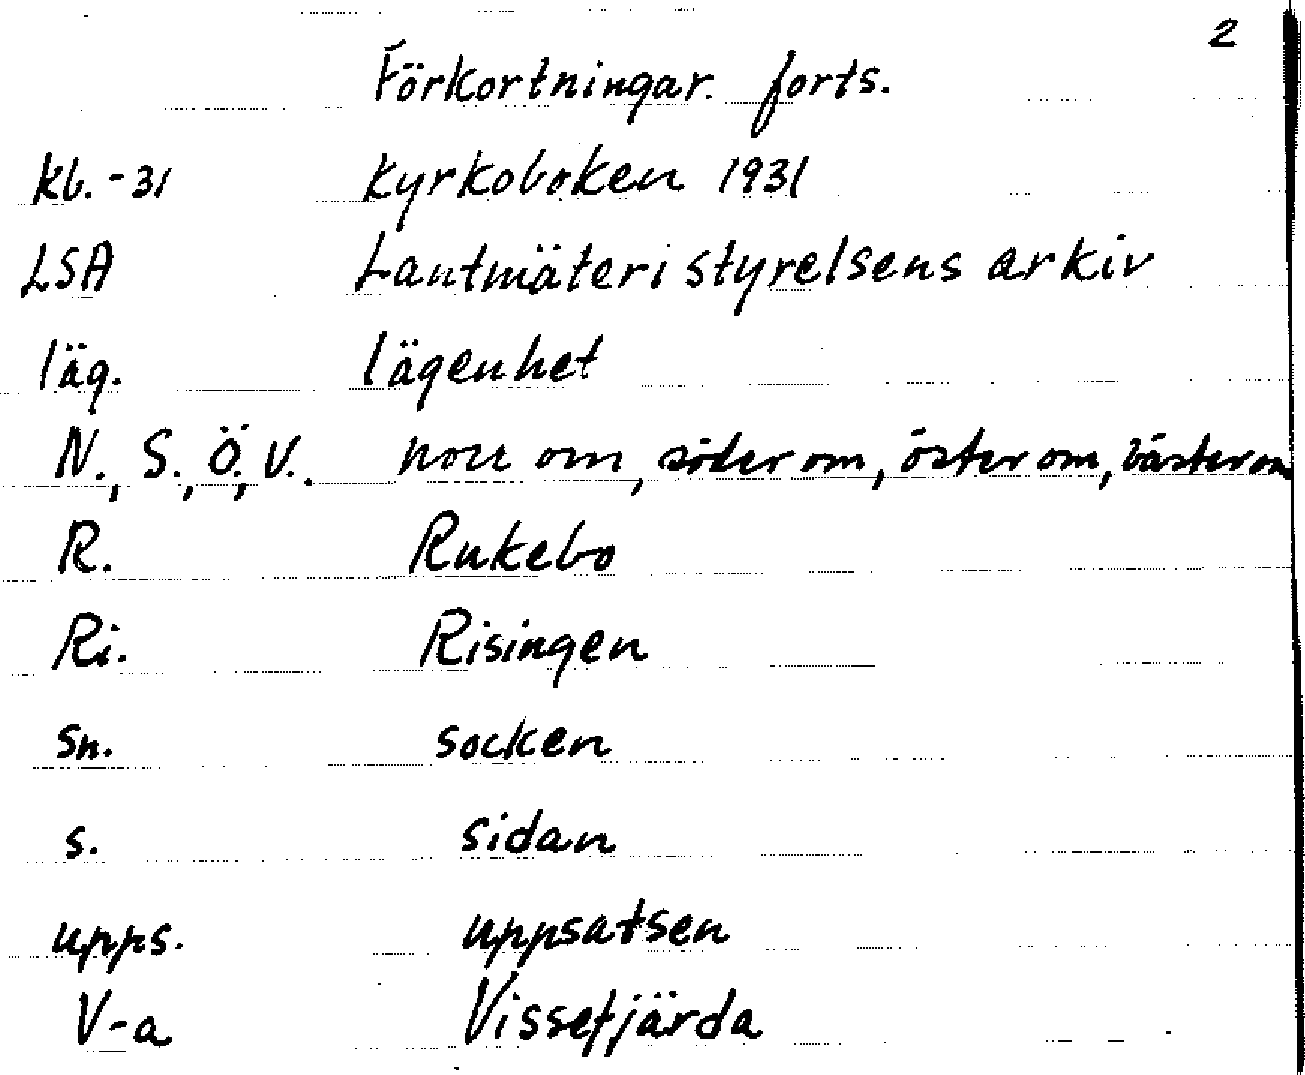 2
Förkortningar. forts.
kb. -31 kyrkoboken 1931
LSA Lantmäteristyrelsens arkiv
läg. lägenhet
N., S., Ö., V. norr om, söder om, öster om, väster om
R. Rukebo
Ri. Risingen
sn. socken
s. sidan
upps. uppsatsen
V-a Vissefjärda